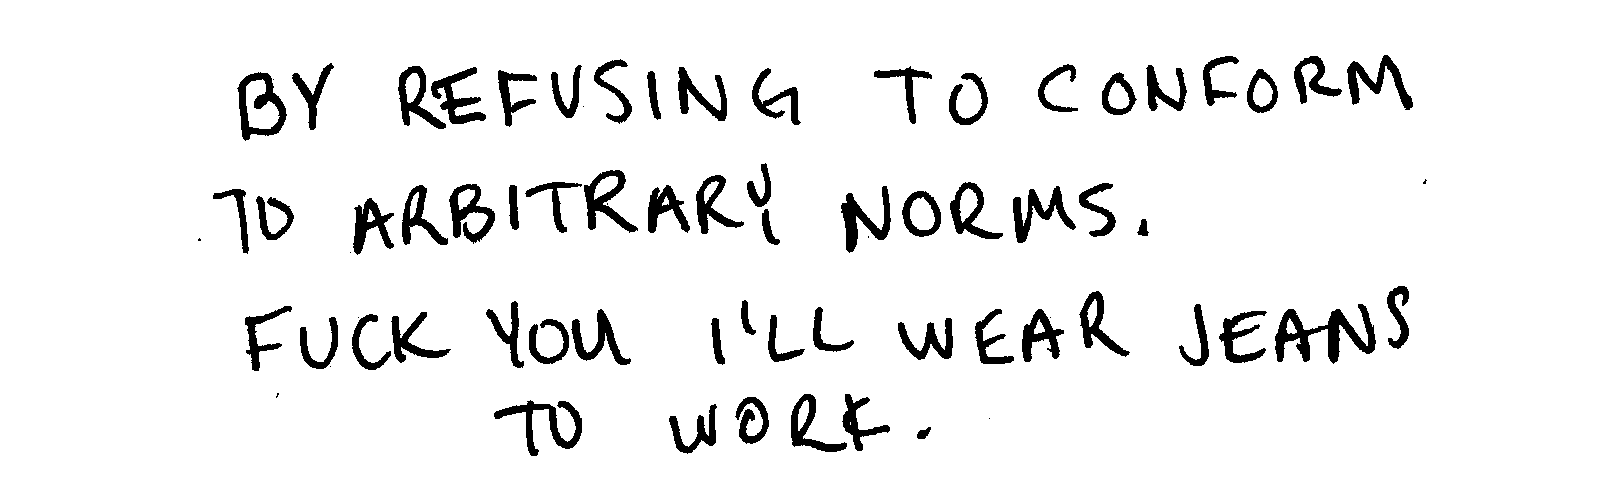 BY REFUSING TO CONFORM
TO ARBITRARY NORMS.
FUCK YOU I'LL WEAR JEANS
TO WORK.